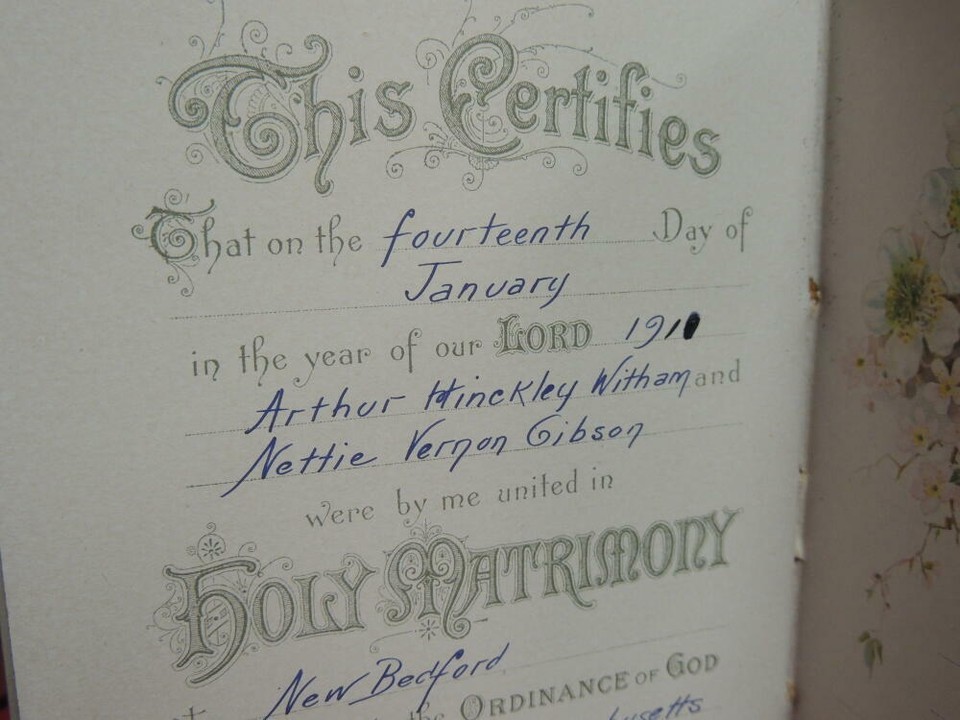 This Certifies
That on the fourteenth Day of
January
in the year of our LORD 191
Arthur Hinckley Witham and
Nettie Vernon Gibson
were by me united in
HOLY MATRIMONY
New Bedford
the ORDINANCE OF GOD